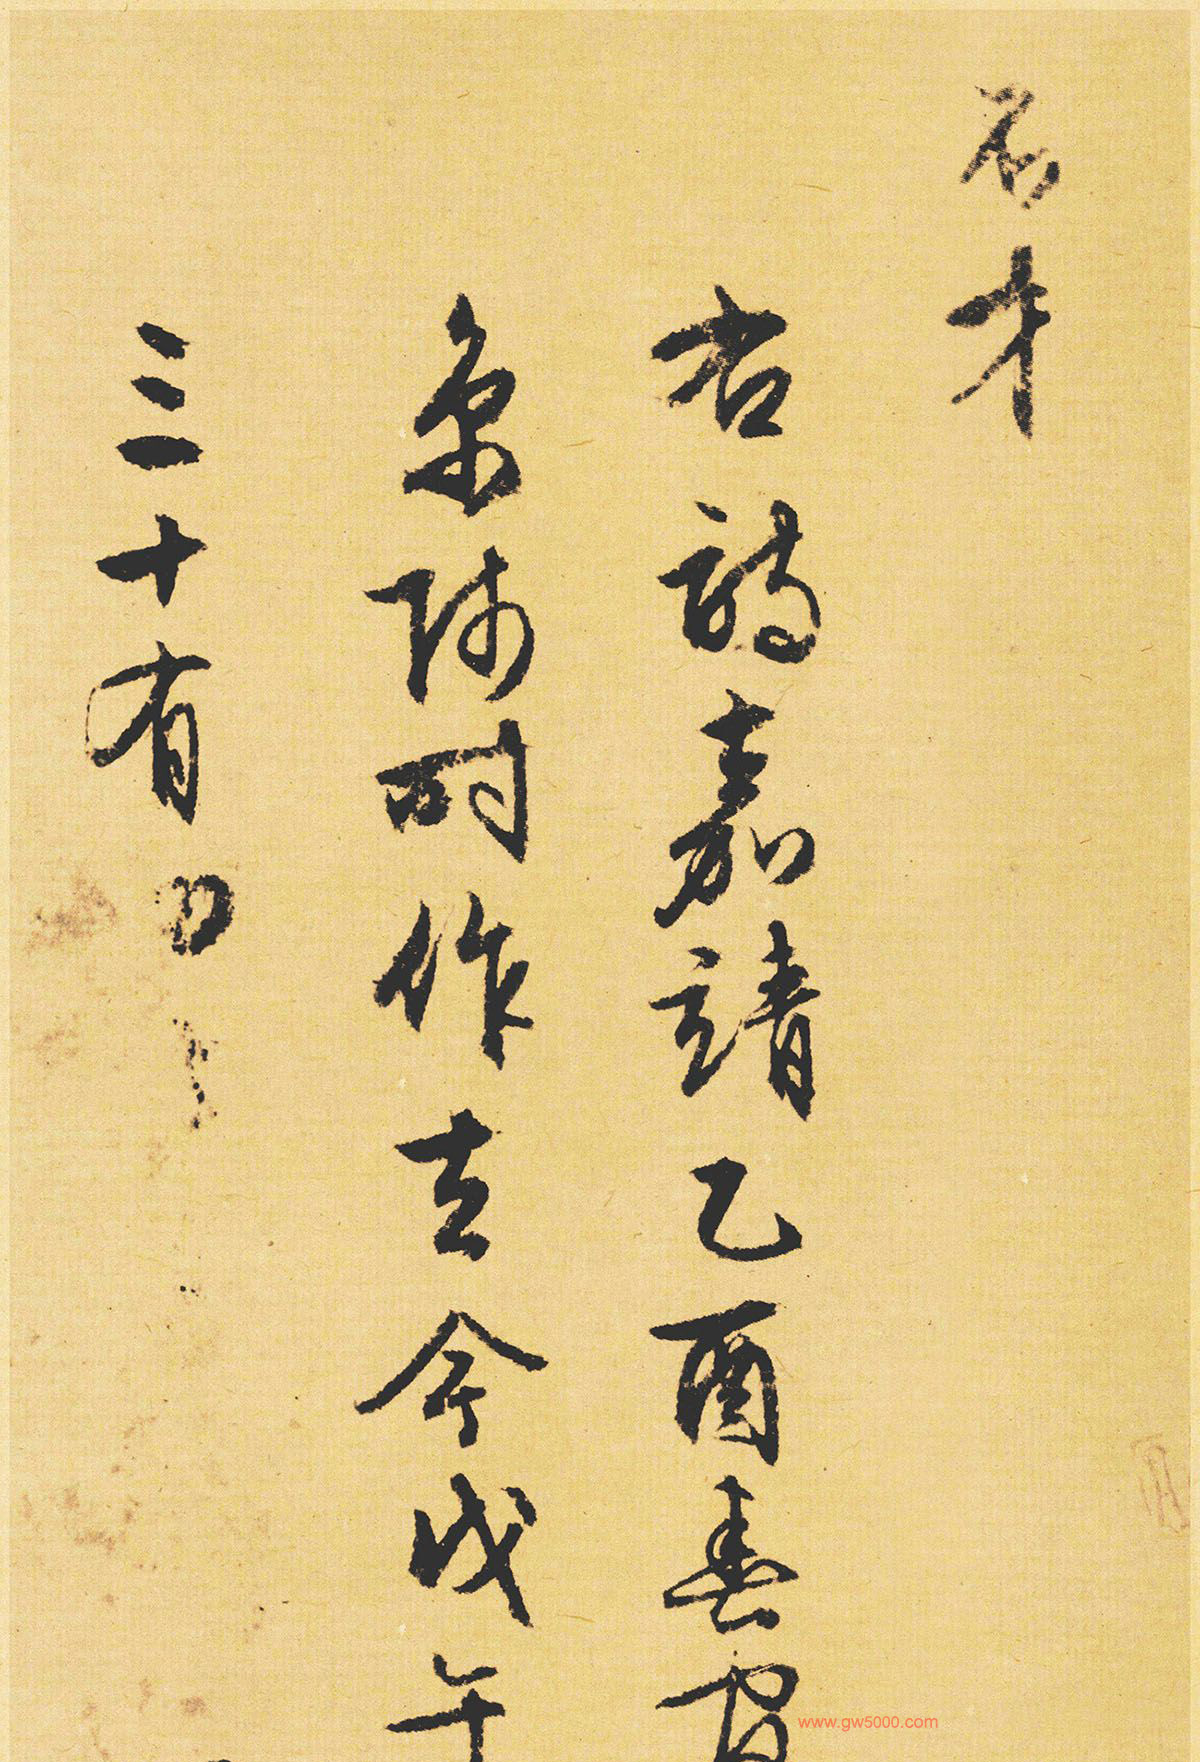 不才
右詩嘉靖乙酉春官
京師時作去今戊午
三十有四
www.gw5000.com